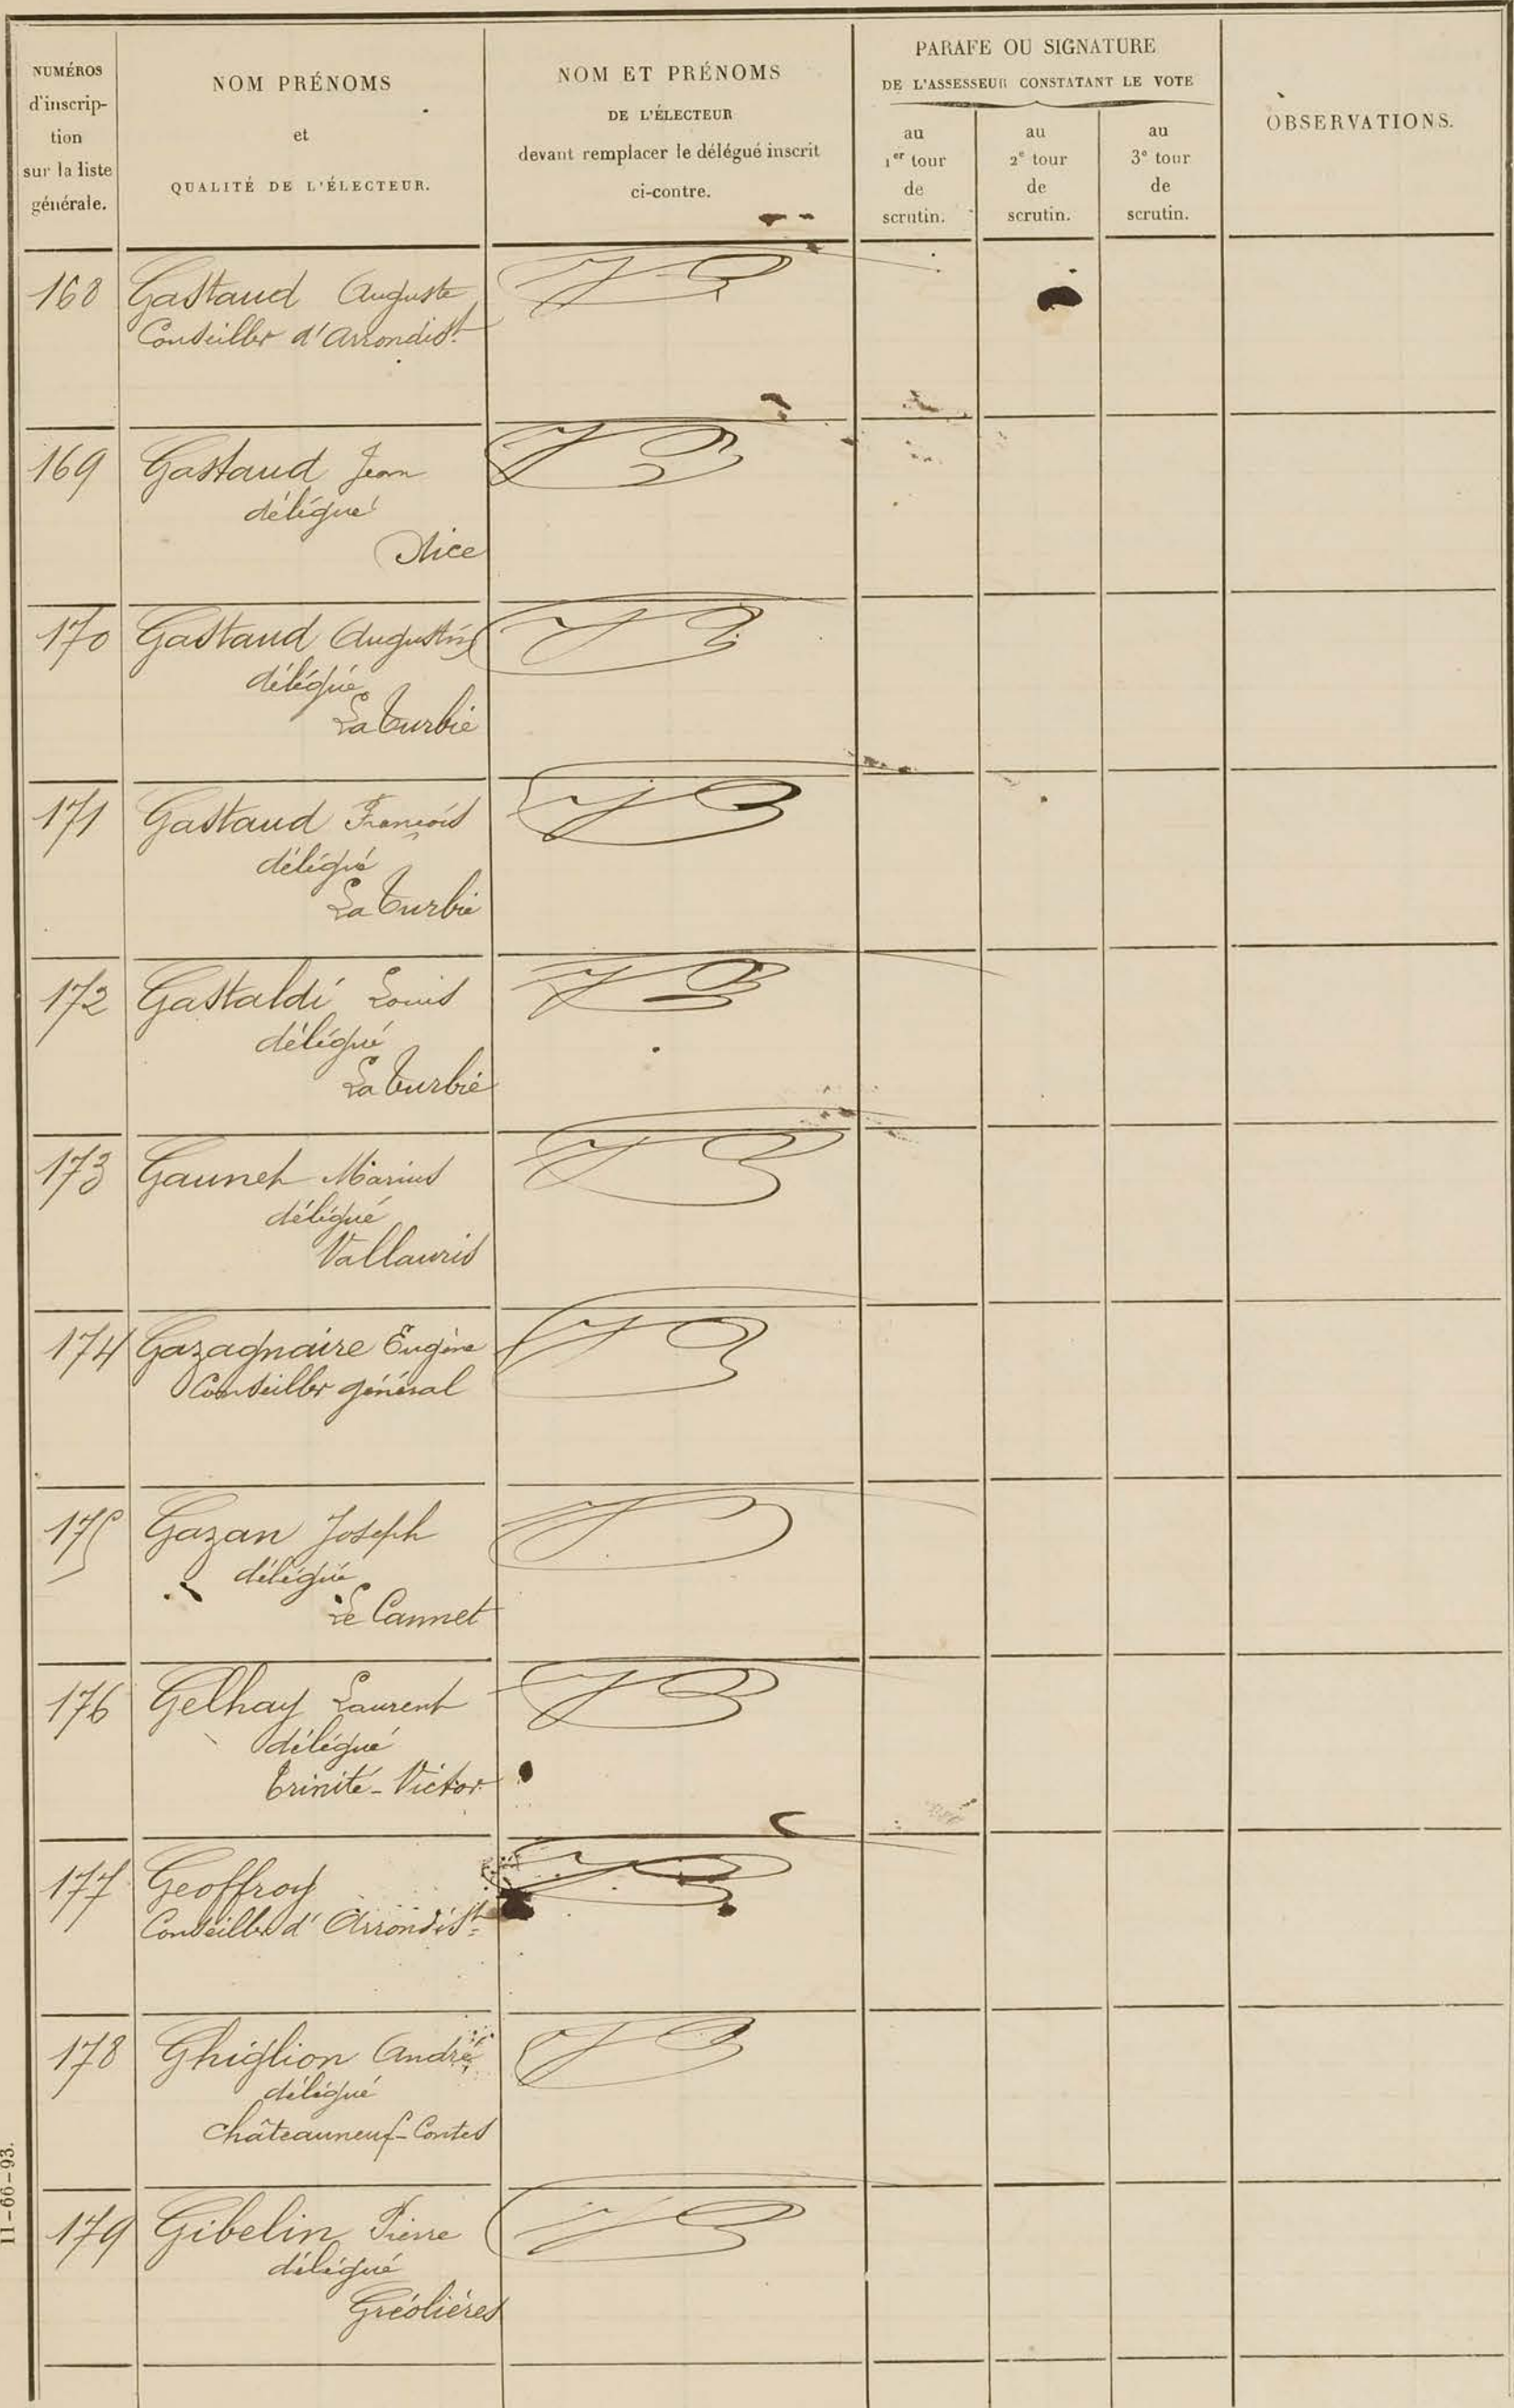 NUMÉROS
d'inscrip-
tion
sur la liste
générale.
NOM PRÉNOMS
et
QUALITÉ DE L'ÉLECTEUR.
NOM ET PRÉNOMS
DE L'ÉLECTEUR
devant remplacer le délégué inscrit
ci-contre.
PARAFE OU SIGNATURE
DE L'ASSESSEUR CONSTATANT LE VOTE
au
1er tour
de
scrutin.
au
2e tour
de
scrutin.
au
3e tour
de
scrutin.
OBSERVATIONS.
168 Gastaud Auguste
Conseiller d'Arrondist.
169 Gastaud Jean
délégué
Nice
170 Gastaud Augustin
délégué
La Turbie
171 Gastaud François
délégué
La Turbie
172 Gastaldi Louis
délégué
La Turbie
173 Gaunet Marius
délégué
Vallauris
174 Gazagnaire Eugène
Conseiller général
175 Gazan Joseph
délégué
Le Cannet
176 Gelhay Laurent
délégué
Trinité-Victor
177 Geoffroy
Conseiller d'Arrondist
178 Ghiglion André
délégué
Châteauneuf-Contes
179 Gibelin Pierre
délégué
Gréolières
11-66-93.